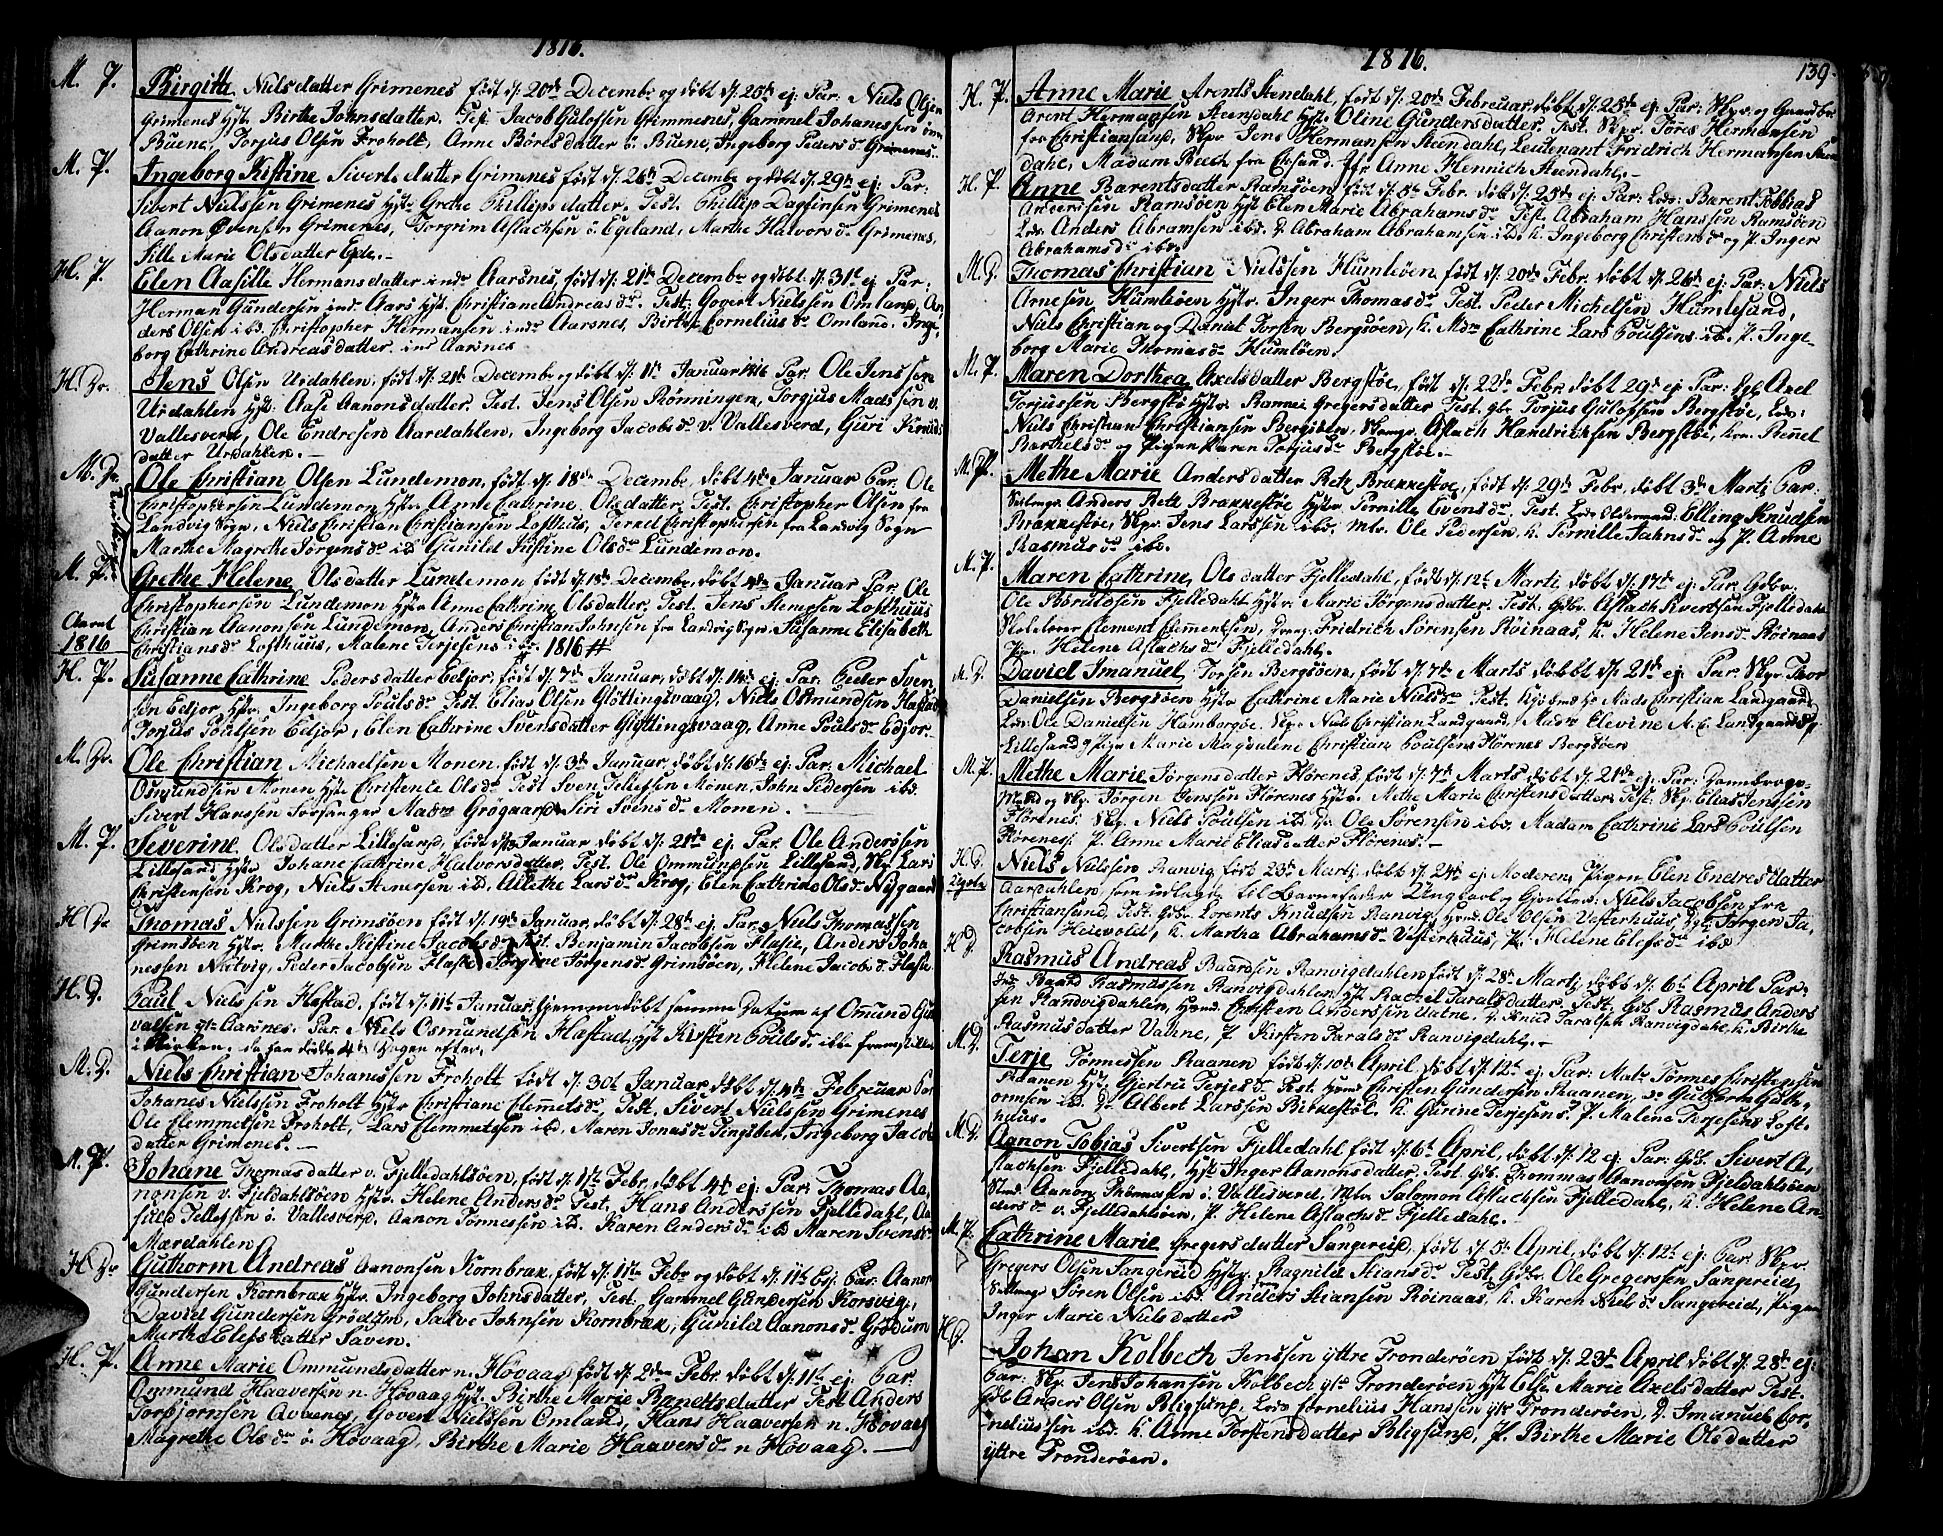 1816.
M. P. Birgitte Nielsdatter Grimenes født d. 20de Decembr og døbt d. 26de ej. Par. Niels Olsen
Grimenes Hst. Birthe Johnsdatter. Test. Jacob Gulofsen Grimmenes, Gammel Johanessen
Buene, Torjus Olsen Froholt, Anne Børelsdatter ö. Buene, Ingeborg Peders dr. Grimenes.
M. P. Ingeborg Kistine Siverts datter Grimenes født d. 26de Decembr og døbt d. 29de ej. Par:
Sivert Nielssen Grimenes Hst. Grethe Phillips datter. Test. Phillip Dagfinsen Grimenes
Aanon Øvensen Grimenes, Torgrim Aslachsen ö. Egeland, Marthe Halvors dr. Grimenes,
Sille Marie Olsdatter Eide.
H. P. Elen Aasille Hermansdatter indr Aarsnes, født d. 21de Decembr og døbt d. 31te ej. Par:
Herman Gundersen indr. Aars Hst. Christiane Andreas dr. Test. Govert Nielssen Omland, An
ders Olsen ibd. Christopher Hermansen indr Aarsnes, Birthe Cornelius dr. Omland. Inge,
borg Cathrine Andreasdatter indr Aarsnes
H. Dr. Jens Olsen Urdahlen, født d. 21de Decembr og døbt d. 1te Januar 1816 Par. Ole Jenssen
Urdahlen Hst: Aase Aanonsdatter. Test. Jens Olsen Rönningen, Torgjus Madssen v.
Vallesverd, Ole Endresen Aardahlen, Ingeborg Jacobs dr. v. Vallesverd, Guri Knuds
datter Urdahlen.
M. Dr. Ole Christian Olsen Lundemon, født d. 18de Decembr, døbt 4de Januar Par. Ole
Christophersen Lundemon Hst. Anne Cathrine Olsdatter, Test. Christopher Olsen fra
Landvig Sogn, Niels Christian Christiansen Lofthuus, Terkel Christophersen fra Landvig Sogn
Marthe Magrethe Jörgens dr. ibd Gunild Justine Ols dr. Lundemon.
M. P. Grethe Helene Olsdatter Lundemon født d. 18de Decembr, døbt 4de Januar Par. Ole
Christophersen Lundemon Hst. Anne Cathrine Olsdatter, Test. Jens Stempsen Lofthuus
Aaret Christian Aanonsen Lundemon, Anders Christian Johnsen fra Landvig Sogn. Susanne Elisabeth
1816 Christians dr. Lofthuus, Malene Terjesens ibd. 1816 #
H. P. Susanne Cathrine Peders datter Eeljor, født d. 7de Januar, døbt d. 14de ej. Par. Peder Sven
sen Eeljor Hst. Ingeborg Pouls dr. Test. Elias Olsen Glöttingsvaag, Niels Osmundsen Hastad
Torjus Poulsen Eeljor, Elen Cathrine Svensdatter Glöttingsvaag, Anne Pouls dr. Eeljor.
M. Dr. Ole Christian Michaelsen Monen. født d. 3de Januar, døbt d. 16de ej. Par. Michael
Osmundsen Monen Hst. Christence Ols dr. Test Sven Tellefsen Monen, John Pedersen ibd.
Sivert Hanssen Forsanger Madm Grögaard Siri Svens dr. Monen.
M. P. Severine Olsdatter Lillesand, født d. Januar, døbt d. 21de ej. Par. Ole Anderssen
Lillesand, Hst. Johane Cathrine Halvorsdatter. Test. Ole Ommundsen Lillesand, Skp. Lars
Christensen Krog, Niels Stenersen ibd, Allethe Lars dr. Krog, Elen Cathrine Ols dr. Nygaard
H. Dr. Thomas Nielssen Grimsöen født d. 19de Januar, døbt d. 28de ej. Par. Niels Thomassen
Grimsöen Hst. Marthe Kistine Jacobs dr. Test. Benjamin Jacobsen Flasie, Anders Joha
nessen Natvig, Peder Jacobsen Flasie Jörgens dr. Grimsöen, Helene Jacobs d. Flasie
H. D. Paul Nielssen Hastad. født d. 11te Januar, hjemmedöbt samme Datum af Omund Gun
valsen ytr Aarsnes. Par. Niels Osmundsen Hastad, Hst Kirsten Pouls dr. ikke fremstillet
i kirken, da han döde 4de Dagen efter.
M. D. Niels Christian Johanessen Froholt født d. 30t Januar, døbt d. 4de Februar Par
Johanes Nielssen Froholt Hst. Christiane Clemmets dr, Test, Sivert Nielssen Grimenes
Ole Clemmetsen Froholt, Lars Clemmetsen ibd, Maren Jonas dr. Tingsbek, Ingeborg Jacobs
datter Grimenes.
M. P. Johane Thomasdatter v. Fjelledahlsöen, født d. 1te Febr. døbt 4t ej: Par: Thomas Aa,
nonsen v. Fjeldahlsöen Hst. Helene Anders dr. Test, Hans Anderssen Fjelledahl, Aa
suld Tellefsen ö. Vallesverd, Aanon Tönnessen ibd. Karen Anders dr. ibd Maren Svens dr.
Mærdahlen
H. Dr Guthorm Andreas Aanonsen Kornbrax, født d. 1te Febr og døbt d. 11te Ejs. Par. Aanon
Gundersen Kornbrax Hst. Ingeborg Johnsdatter, Test. Gammel Gundersen Korsvig,
David Gundersen Grödum, Salve Johnsen Kornbrax, Gunild Aanons dr. Grödum
Marthe Elefs datter Saven.
H. P. Anne Marie Ommundsdatter n. Hövaag, født d. 2den Febr. døbt d. 11te ej. Par.
Ommund Haaversen n. Hövaag Hst. Birthe Marie Berntsdatter Test Anders
Torbjornsen Avnenes, Govert Nielssen Omland, Hans Haaversen n. Hövaag
Magrethe Ols dr. ö. Hövaag, Birthe Marie Haavers dr. n Hövaag.
1816. 139.
H. P. Anne Marie Arents Steendahl, født d. 20de Februar, døbt d. 25de ej. Par: Skpr. og Gaardbr.
Arent Hermansen Steendahl Hst Oline Gundersdatter. Test. Skpr. Tönes Hermansen
fra Christiansand, Skpr Jens Hermansen Steendahl, Leutenant Fridrich Hermansen Steen
dahl, Madam Beck fra Egsund. Jfr. Anne Hennich Steendahl.
H. P. Anne Barentsdatter Ramsöen, født d. 8de Febr. døbt d. 25de ej. Par: Lods: Barent Tobbias
Andersen Ramsöen Hst Elen Marie Abrahams dr. Test. Abraham Hanssen Ramsöen
Lods. Anders Abramsen ibd. D. Abraham Abrahamsen ibd. K. Ingeborg Christens dr og P. Inger
Abrahams dr. ibd.
M. D. Thomas Christian Nielssen Humlöen, født d. 20de Febr. døbt d. 26de ej. Par. Niels
Arnesen Humlöen Hst. Inger Thomas dr. Test. Peder Michelsen Humlesund,
Niels Christian og Daniel Torsen Bergsöen, K. Mdm Cathrine Lars Poulsens ibd. P. Inge-
borg Marie Thomas dr. Humlöen.
M. P. Maren Dorthea Axelsdatter Bergstöe, født d. 22de Febr. døbt 29de ej Par: Axel
Torjussen Bergstö Hst. Rannei Gregersdatter Test. Gbr. Torjus Gulofsen Bergstöe, Lods:
Niels Christian Christiansen Bergstöen, Aslach Handrichsen Bergstöe, Kon. Rennel
Barthels dr. og Pigen Karen Torjus dr. Bergstöe.
M. P. Methe Marie Andersdatter Beck Brækkestöe, født d. 29de Febr. døbt 3de Marti Par:
Anders Beck Brækkestöe Hst. Pernille Evens dr. Test. Lods Oldermand: Elling Knudsen
Brækkestöe, Skpr. Jens Larssen ibd. Mtr. Ole Pedersen, K. Pernille Jahns dr. og P. Anne
Rasmus dr. ibd.
M. P. Maren Cathrine Ols datter Fjelledahl, født d. 12te Marti døbt d. 17de ej. Par. Gdbr.
Ole Börulvsen Fjelledahl Hst. Marie Jörgensdatter. Test. Gdbr. Aslach Sivertsen Fjelledahl
Skolelærer Clement Clementsen, Fridrich Sörensen Röinaas, K. Helene Jens dr. Röinaas
Pige. Helene Aslachs dr. Fjelledahl.
M. D. David Imanuel Torsen Bergsöen, født d. 7de Marts døbt d. 21de ej. Par. Skpr. Thor
Danielsen Bergsöen Hst. Cathrine Marie Niels dr. Test. Mads Christian Landgaard
Lods: Ole Danielsen Hamborgöe. Skpr. Niels Christian Landgaard, Madm. Elevine
Lillesand og Pigen Marie Magdelene Christian Poulsens Florenes Bergsöen
M. P. Methe Marie Jörgensdatter Florenes, født d. 7de Marts døbt d. 21de ej. Par: Dannebrogs-
Mand og Skp. Jörgen Jenssen Florenes Hst. Methe Marie Christensdatter Test. Skp. Elias Jenssen
Florenes. Skp. Niels Poulsen ibd Ole Sörensen ibd. Madam Cathrine Lars Poulsen
Florenes. P. Anne Marie Eliasdatter Florenes.
H. D. Niels Nielssen Ranvig født 23de Marti, døbt d. 24de ej. Moderen Pigen Elen Endres datter
Uægte Aardahlen, som udlagte til Barnefader Ungkarl og Niels Jacobsen fra
Christiansand, Test. Gbr. Lorents Knudsen Ranvig, Ole Olsen Vesterhuus, Jörgen Ja,
cobsen Heievold, K. Martha Abrahams dr. Vesterhuus, P. Helene Elefs dr. ibd.
H. D. Rasmus Andreas Baardsen Ranvigdahlen født d. 28de Marti, døbt d. 6te April Par:
Baard Rasmussen Ranvigdahlen, Hst Rachel Taralsdatter. Test. Gdb. Rasmus Anders
sen Ranvigdahlen, Christen Anderssen Valne, Knud Taralsen Ranvigdahl, K. Birthe
Rasmusdatter Vahne, P Kirsten Tarals dr. Ranvigdahl.
M. D. Terje Tönnessen Raanen født d. 10de April, døbt d. 12te ej: Par: Tönnes Christensen
Raanen Hst. Gjertru Terjes dr. Test. Christen Gundersen Raanen, Guthorm Guth,
ormsen ibd. Dr Albert Larssen Birkestöl. K. Gurine Terjesens P. Malene Terjesens Loft.
huus.
M. D. Aanon Tobias Sivertsen Fjelledahl født d. 6te April, døbt d. 12 ej. Par: Gdb. Sivert A,
slachsen Fjelledahl, Hst Inger Aanonsdatter, Test. Gdb. Thommas Aanonsen Fjeldahlsöen
Aanon Thommesen ö. Vallesverd, Salomon Aslachsen Fjelledahl, K. Helene An-
ders dr. v. Fjelledahlsöen, P. Helene Aslachs dr. Fjelledahl.
M. P. Cathrine Marie Gregers datter Sangereid, født d. 5te April, døbt d. 12te ej: Par. Skpr.
Gregers Olsen Sangereid Hst. Ragnild Stians dr. Test. Gdbr. Ole Gregerssen Sangreid,
Sören Olsen ibd. Anders Stiansen Röinaas, K. Karen Niels dr. Sangereid, Pigen
Inger Marie Nielsdatter
H. D. Johan Kolbech Jenssen yttre Tronderöen født d. 23de April døbt d. 28de ej:
Par: Skp. Jens Johansen Kolbech ytr Tronderöen Hst Else Marie Axelsdatter Test.
Anders Olsen Bligsund, Lods Cornelius Hanssen ytr Tronderöen, D. Imanuel Cor-
neliussen ibd. K. Anne Torstensdatter Bligsund, P. Birthe Marie Olsdatter
yttre Tronderöen.